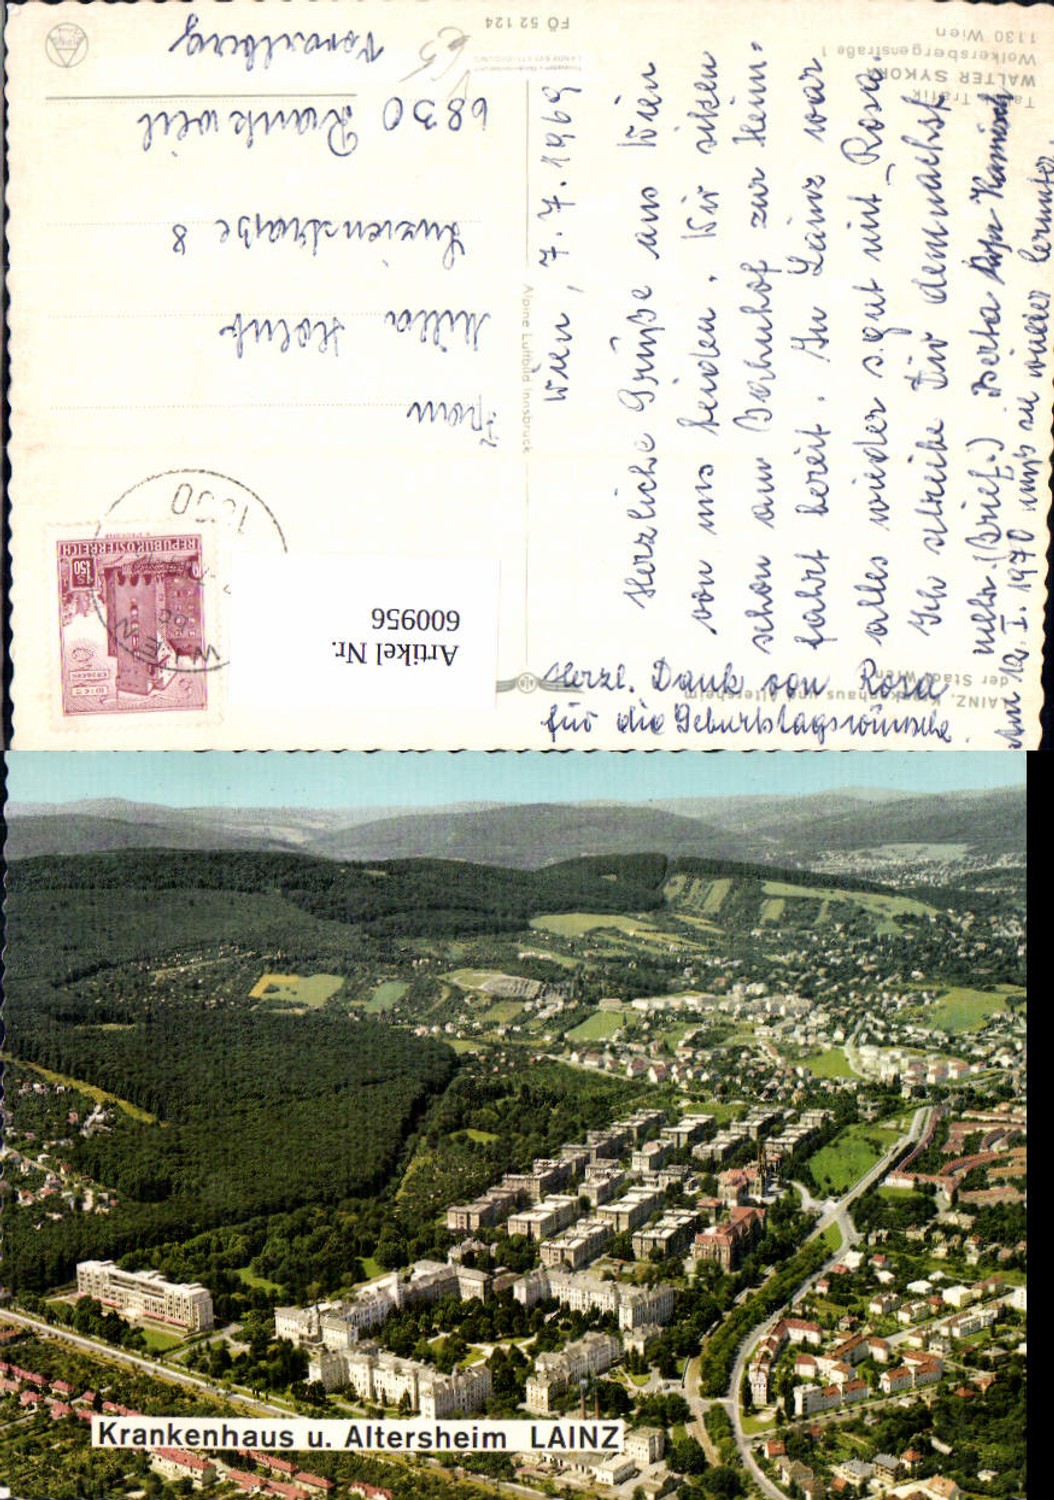 Tabak Trafik
WALTER SYKORA
Wolkersbergenstraße 1
1130 Wien
FÖ 52 124
Wien, 7.7.1969
Herzliche Grüße aus Wien
von uns beiden. Wir sitzen
schon am Bahnhof zur Heim-
fahrt bereit. In Lainz war
alles wieder s. gut mit Rosa.
Ich schreibe Dir demnächst
mehr. (Brief.) Berta
Am 12. I. 1970 muß sie wieder herunter.
Herzl. Dank von Rosa
für die Geburtstagswünsche.
LAINZ, Krankenhaus und Altersheim
der Stadt Wien
Alpine Luftbild Innsbruck
Frau
Milla Holub
Luzienstraße 8
6830 Rankweil
Vorarlberg
REPUBLIK ÖSTERREICH
S 1.50
1030
WIEN
Artikel Nr.
600956
Krankenhaus u. Altersheim LAINZ